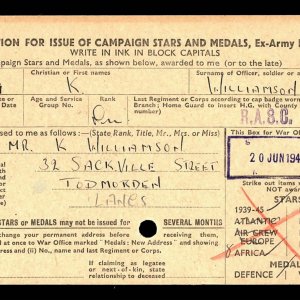 TION FOR ISSUE OF CAMPAIGN STARS AND MEDALS, Ex-Army
WRITE IN INK IN BLOCK CAPITALS
paign Stars and Medals, as shown below, awarded to me (or to the late)
Christian or First Names Surname of Officer, soldier or
K. WILLIAMSON
No. Age and Service Group No. Rank Last Regiment or Corps according to cap badge worn
Branch; Home Guard to insert H.G. with County
R.A.S.C.
ssued to me as follows :— (State Rank, Title, Mr., Mrs. or Miss) This Box for War Office
MR. K WILLIAMSON
32 SACKVILLE STREET
TODMORDEN
LANCS
20 JUN 194
Strike out items
NOT
STARS
1939-45
ATLANTIC
AIR CREW
EUROPE
AFRICA
MEDAL
DEFENCE
STARS or MEDALS may not be issued for SEVERAL MONTHS
d at once to War Office marked "Medals: New Address" and showing
and (ii) No., name and last Regiment or Corps.
If claiming as legatee
or next-of-kin, state
relationship to deceased